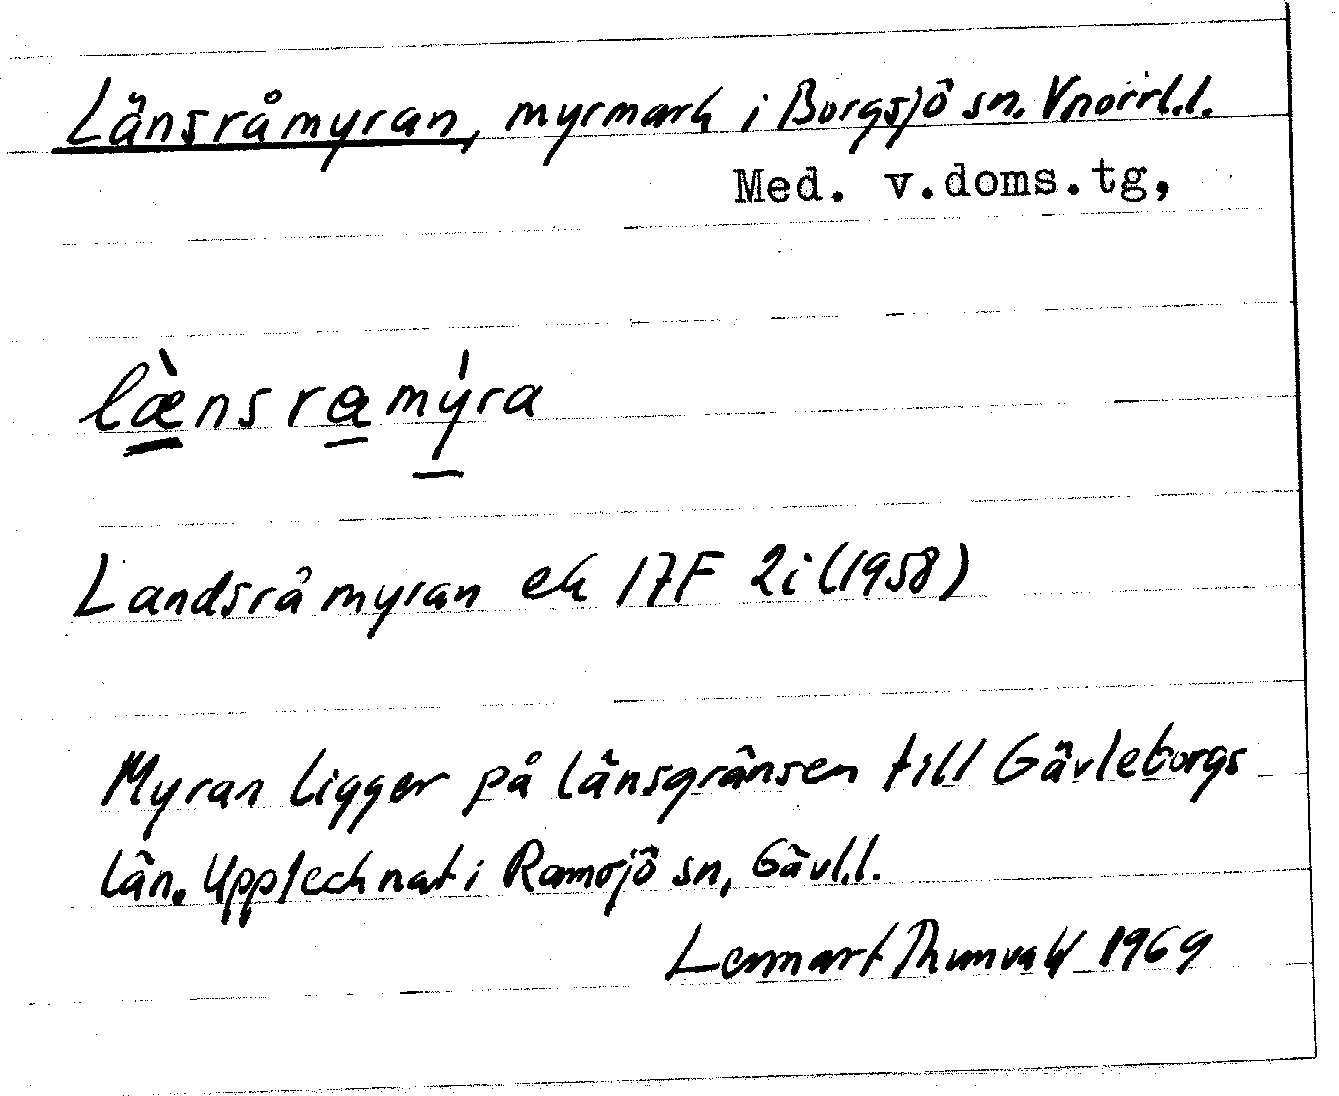 Länsråmyran, myrmark i Borgsjö sn. Vnorrl.l.
Med. v.doms.tg,
læ̀nsramýra
Landsråmyran ek 17F 2i (1958)
Myran ligger på länsgränsen till Gävleborgs
län. Upptecknat i Ramsjö sn, Gävl.l.
Lennart Thunvall 1969